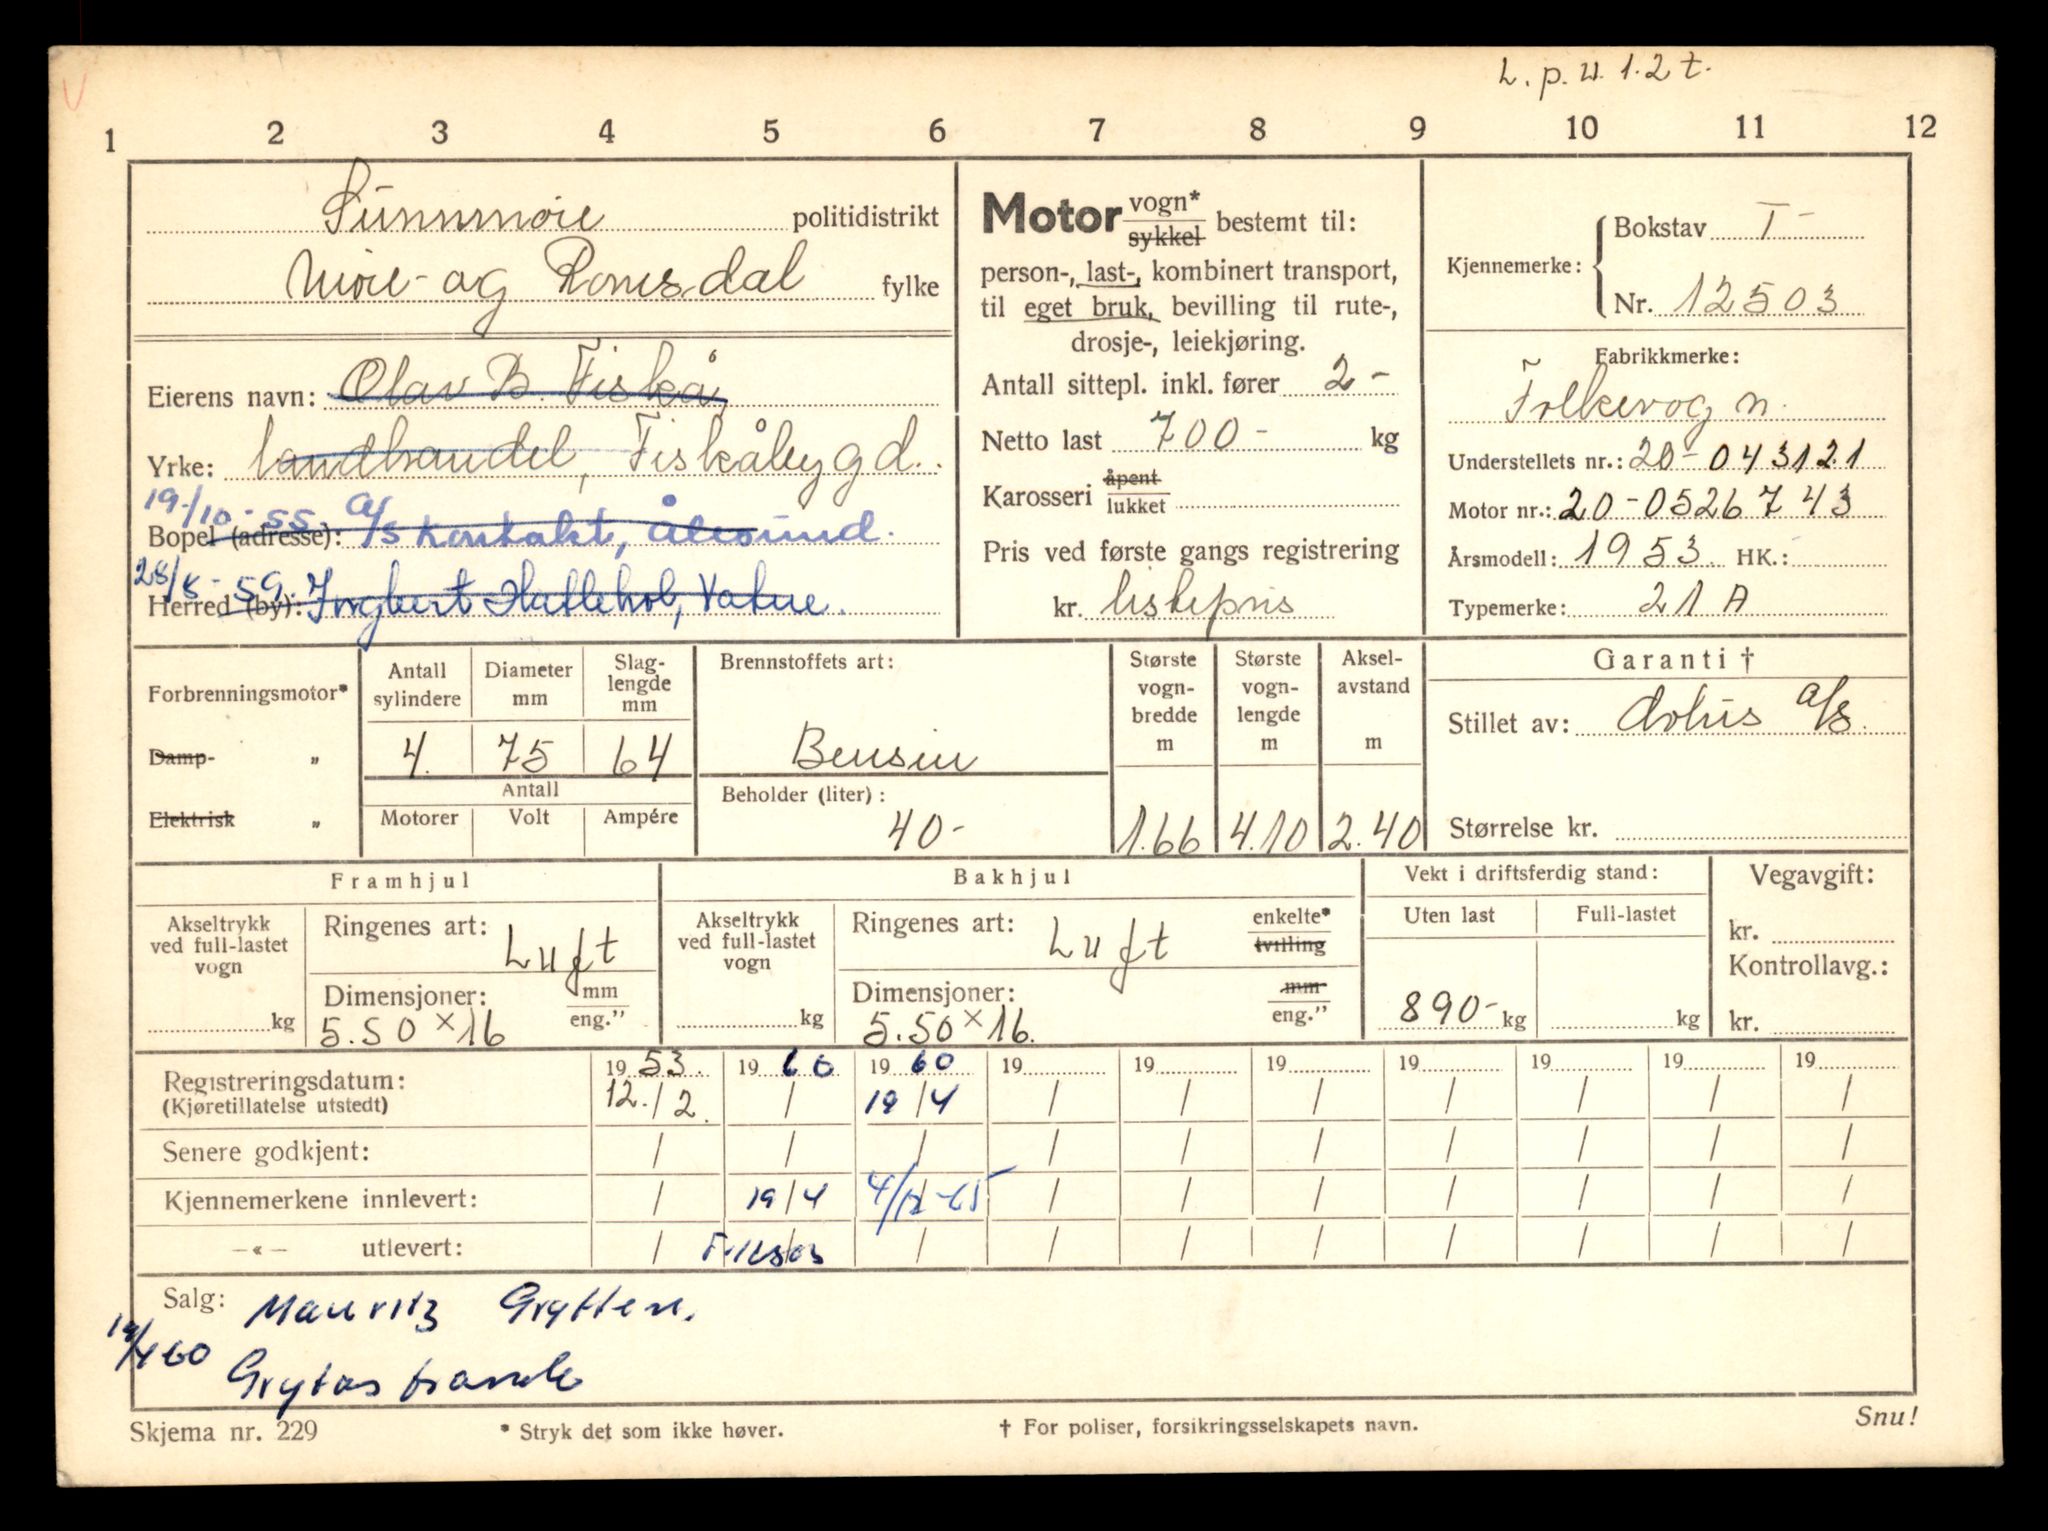 L. p. u. 1.2 t.
1 2 3 4 5 6 7 8 9 10 11 12
Sunnmøre politidistrikt
Møre- og Romsdal fylke
Eierens navn: Olav B. Fiskå
Yrke: landhandel, Fiskåbygd.
19/10-55 A/S Kontakt, Ålesund.
Bopel (adresse):
28/8-59. Ingbert Hatlehol, Vatne.
Herred (by):
Motor vogn* sykkel bestemt til:
person-, last-, kombinert transport,
til eget bruk, bevilling til rute-,
drosje-, leiekjøring.
Antall sittepl. inkl. fører 2-
Netto last 700- kg
Karosseri åpent lukket
Pris ved første gangs registrering
kr. listepris
Kjennemerke: Bokstav T-
Nr. 12503
Fabrikkmerke:
Folkevogn.
Understellets nr.: 20-043121
Motor nr.: 20-0526743
Årsmodell: 1953. HK.:
Typemerke: 21 A
Forbrenningsmotor*
Damp- "
Elektrisk "
Antall sylindere
4.
Diameter mm
75
Slag-lengde mm
64
Antall
Motorer Volt Ampére
Brennstoffets art:
Bensin
Beholder (liter):
40-
Største vogn-bredde m
1.66
Største vogn-lengde m
4.10
Aksel-avstand m
2.40
Garanti †
Stillet av: A/S
Størrelse kr.
Framhjul
Akseltrykk ved full-lastet vogn
kg
Ringenes art: Luft
Dimensjoner: mm eng."
5.50 x 16
Bakhjul
Akseltrykk ved full-lastet vogn
kg
Ringenes art: Luft enkelte* tvilling
Dimensjoner: mm eng."
5.50 x 16.
Vekt i driftsferdig stand:
Uten last Full-lastet
890- kg kg
Vegavgift:
kr.
Kontrollavg.:
kr.
19 53. 19 60 19 60 19 19 19 19 19 19 19
Registreringsdatum: 12./2. / 19/4 / / / / / / /
(Kjøretillatelse utstedt)
Senere godkjent: / / / / / / / / / /
Kjennemerkene innlevert: / 19/4 4/12-65 / / / / / / /
—«— utlevert: / / / / / / / / /
Salg: Mauritz Grytten.
19/4 60
Grytastranda
Skjema nr. 229
* Stryk det som ikke høver.
† For poliser, forsikringsselskapets navn.
Snu!